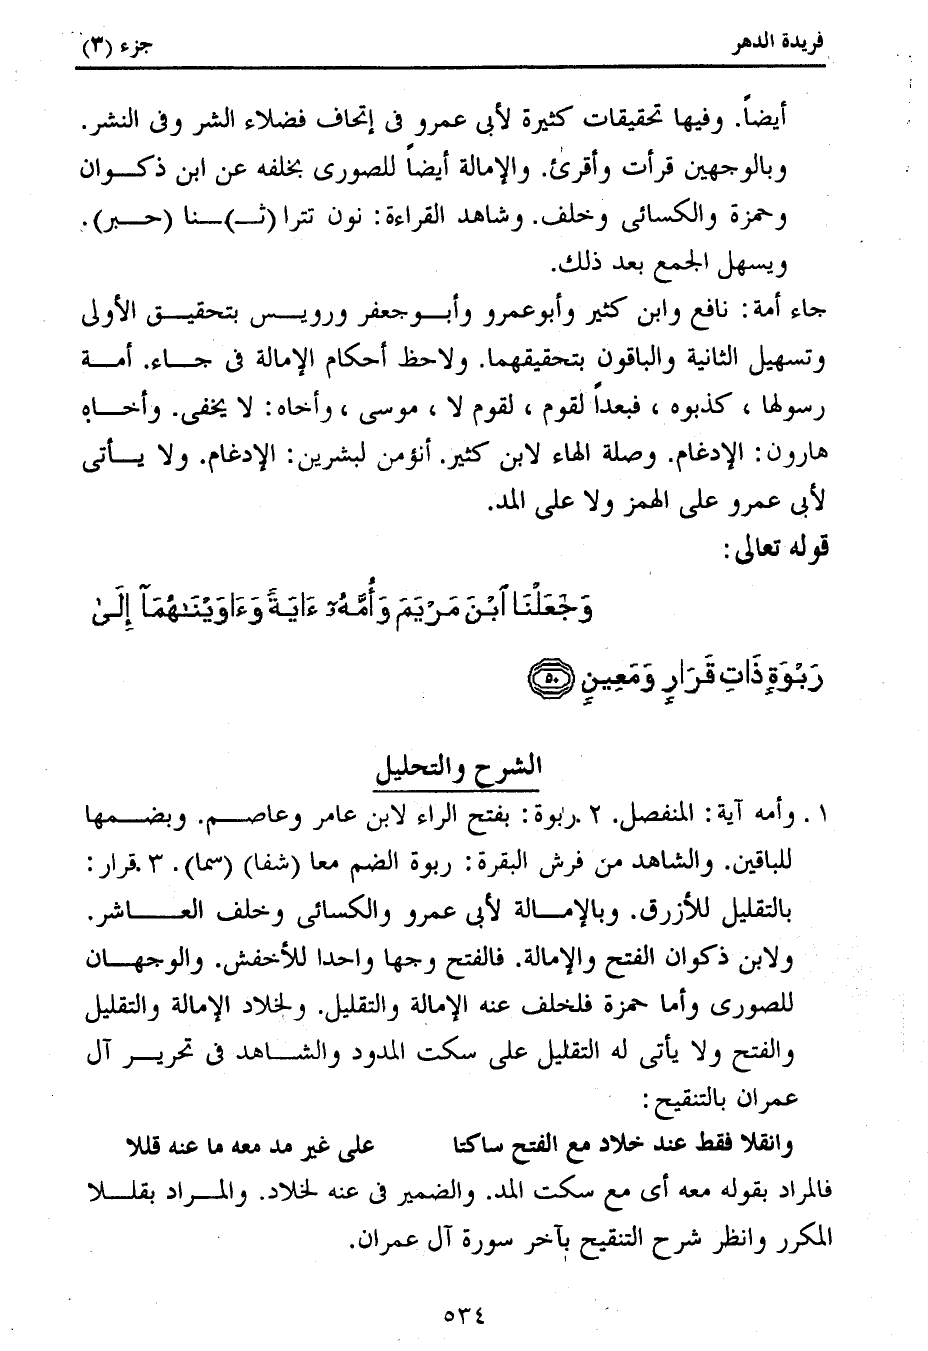 فريدة الدهر
جزء (٣)
أيضاً. وفيها تحقيقات كثيرة لأبى عمرو فى إتحاف فضلاء الشر وفى النشر.
وبالوجهين قرأت وأقرئ. والإمالة أيضاً للصورى بخلفه عن ابن ذكوان
وحمزة والكسائى وخلف. وشاهد القراءة: نون تترا (ثـ)ـنا (حبر).
ويسهل الجمع بعد ذلك.
جاء أمة: نافع وابن كثير وأبوعمرو وأبوجعفر ورويس بتحقيق الأولى
وتسهيل الثانية والباقون بتحقيقهما. ولاحظ أحكام الإمالة فى جاء. أمة
رسولها ، كذبوه ، فبعداً لقوم ، لقوم لا ، موسى ، وأخاه: لا يخفى. وأخاه
هارون: الإدغام. وصلة الهاء لابن كثير. أنؤمن لبشرين: الإدغام. ولا يأتى
لأبى عمرو على الهمز ولا على المد.
قوله تعالى:
وَجَعَلْنَا ٱبْنَ مَرْيَمَ وَأُمَّهُۥٓ ءَايَةً وَءَاوَيْنَـٰهُمَآ إِلَىٰ
رَبْوَةٍ ذَاتِ قَرَارٍ وَمَعِينٍ ٥٠
الشرح والتحليل
١. وأمه آية: المنفصل. ٢.ربوة: بفتح الراء لابن عامر وعاصم. وبضمها
للباقين. والشاهد من فرش البقرة: ربوة الضم معا (شفا) (سما). ٣.قرار:
بالتقليل للأزرق. وبالإمالة لأبى عمرو والكسائى وخلف العاشر.
ولابن ذكوان الفتح والإمالة. فالفتح وجها واحدا للأخفش. والوجهان
للصورى وأما حمزة فلخلف عنه الإمالة والتقليل. ولخلاد الإمالة والتقليل
والفتح ولا يأتى له التقليل على سكت المدود والشاهد فى تحرير آل
عمران بالتنقيح:
وانقلا فقط عند خلاد مع الفتح ساكتا على غير مد معه ما عنه قللا
فالمراد بقوله معه أى مع سكت المد. والضمير فى عنه لخلاد. والمراد بقللا
المكرر وانظر شرح التنقيح بآخر سورة آل عمران.
٥٣٤